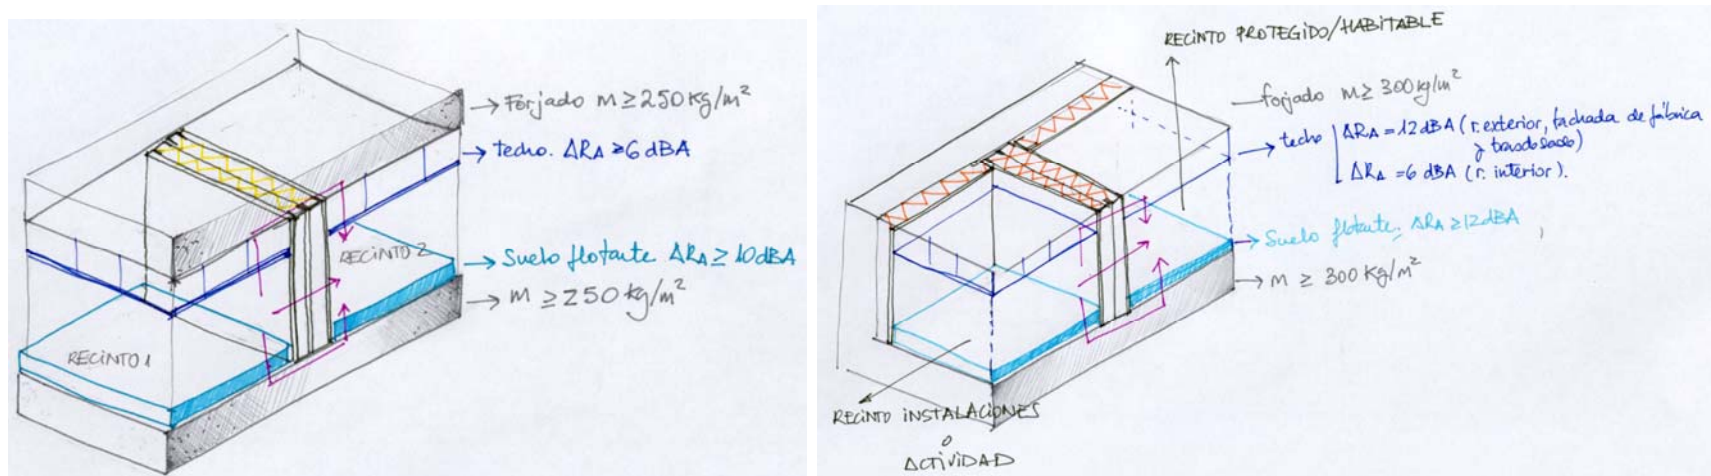 → Forjado m ≥ 250 kg/m²
→ techo. ΔRA ≥ 6 dBA
RECINTO 2
→ Suelo flotante ΔRA ≥ 10 dBA
→ m ≥ 250 kg/m²
RECINTO 1
RECINTO PROTEGIDO/HABITABLE
forjado m ≥ 300 kg/m²
→ techo ΔRA = 12 dBA (r. exterior, fachada de fábrica
y trasdosado)
ΔRA = 6 dBA (r. interior).
→ Suelo flotante. ΔRA ≥ 12 dBA
→ m ≥ 300 kg/m²
RECINTO INSTALACIONES
O
ACTIVIDAD